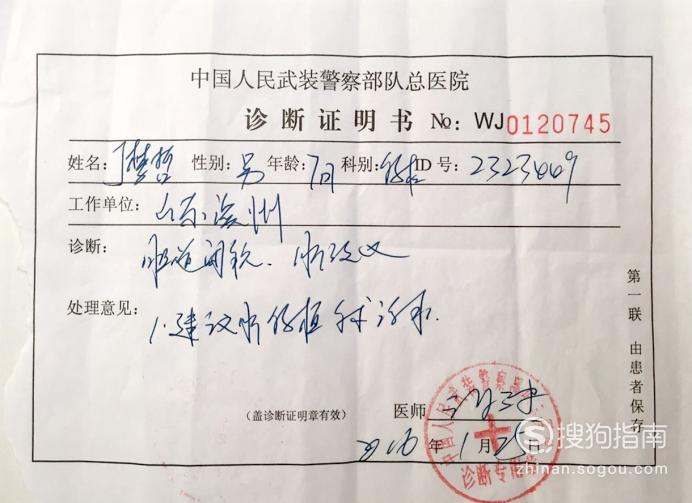 中国人民武装警察部队总医院
诊断证明书 №: WJ0120745
姓名: 丁梦哲 性别: 男 年龄: 7月 科别: 移植 ID号: 2323009
工作单位: 山东滨州
诊断: 胆道闭锁、肝硬化
处理意见:
1.建议肝移植手术治疗.
第一联 由患者保存
(盖诊断证明章有效)
医师
2016年1月25日
诊断专用章
搜狗指南
zhinan.sogou.com